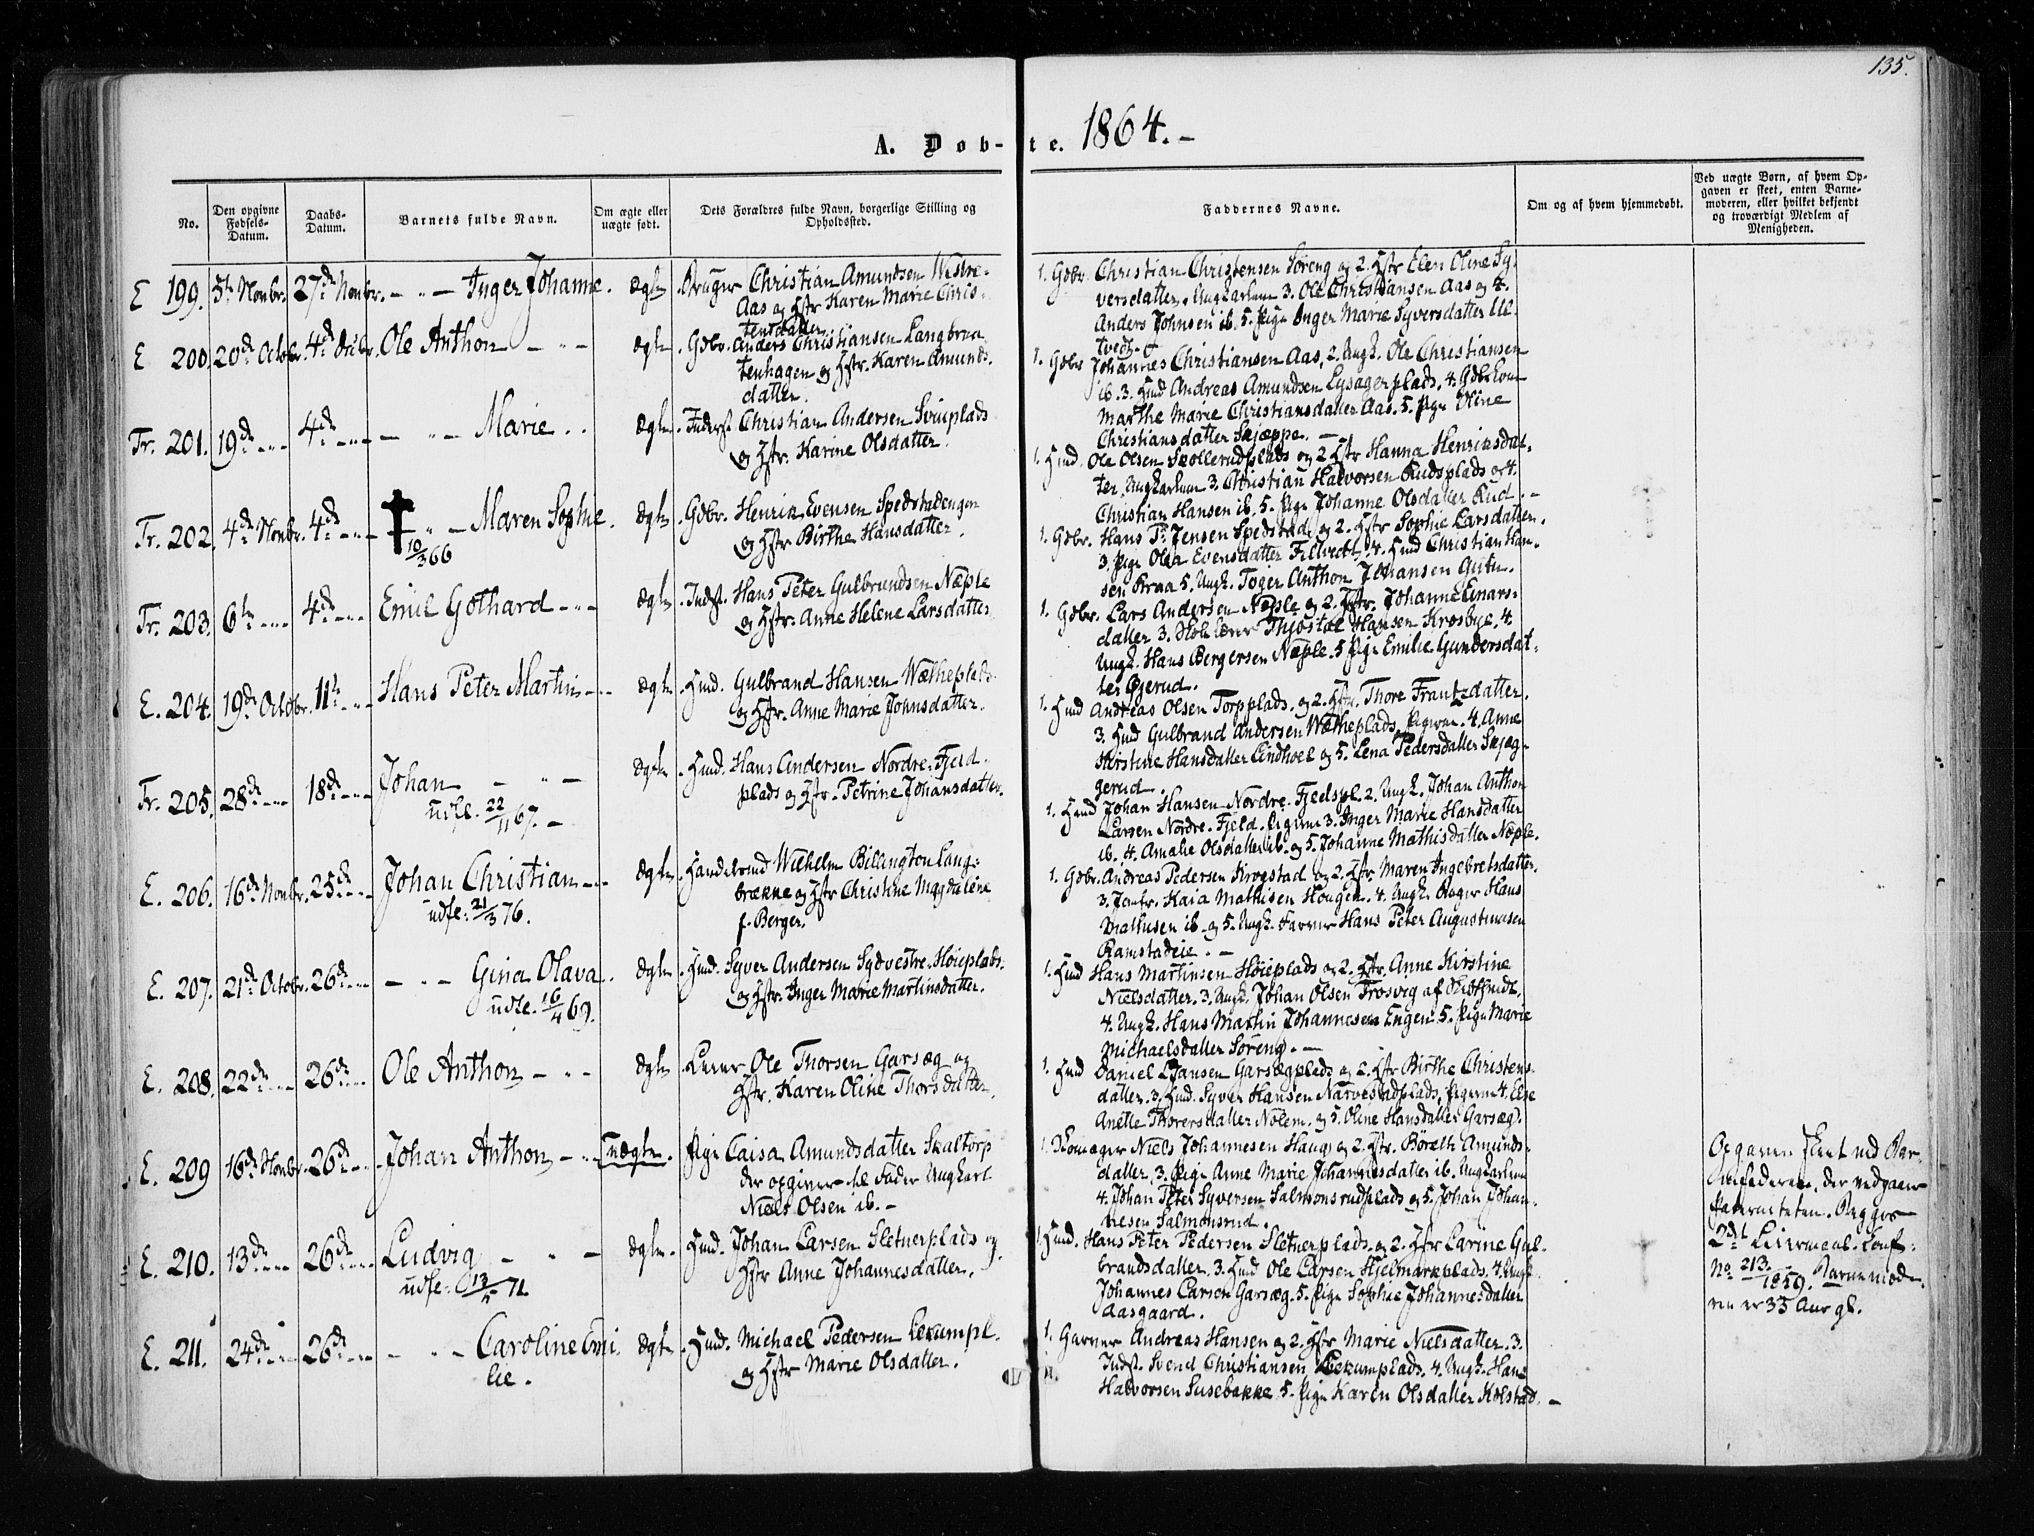 135.
A. Døb-te. 1864.-
No.
Den opgivne Fødsels-Datum.
Daabs-Datum.
Barnets fulde Navn.
Om ægte eller uægte født.
Dets Forældres fulde Navn, borgerlige Stilling og Opholdssted.
Faddernes Navne.
Om og af hvem hjemmedøbt.
Ved uægte Børn, af hvem Op-
gaven er skeet, enten Barne-
moderen, eller hvilket bekjendt
og troværdigt Medlem af
Menigheden.
E 199. 5te Novbr. 27de Novbr. - " - Inger Johanne. Ægte. Bruger Christian Amundsen Westre-
Aas og Hstr Karen Marie Chris-
tensdatter
1. Gdbr. Christian Christensen Søreng og 2. Hstr Elen Oline Sy-
versdatter. Ungkarlene 3. Ole Christiansen Aas og 4.
Anders Johnsen ib. 5. Pige Inger Marie Syversdatter Ul-
tvedt.
E 200. 20de Octobr. 4de Dcbr. Ole Anthon - " - Ægte. Gdbr. Anders Christiansen Langbraa-
tenhagen og Hstr. Karen Amunds-
datter.
1. Gdbr Johannes Christiansen Aas, 2. Ungk. Ole Christiansen
ib. 3. Hmd Andreas Amundsen Lysagerplads, 4. Gdbr.kone
Marthe Marie Christiansdatter Aas. 5. Pige Oline
Christiansdatter Skjæppe. -
Tr. 201. 19de - " - 4de - " - - " - Marie. Ægte. Inderst Christian Andersen Sviuplads
og Hstr. Karine Olsdatter.
1. Hmd. Ole Olsen Skollerudplads og 2 Hstr Hanna Henriksdat-
ter, Ungkarlene 3. Christian Halvorsen Rudsplads og 4.
Christian Hansen ib. 5. Pige Johanne Olsdatter Rud. -
Tr. 202. 4de Novbr. 4de - " - - " - Maren Sophie. Ægte. Gdbr. Henrik Evensen Spedstadengen
10/3 66
og Hstr Birthe Hansdatter.
1. Gdbr. Hans P. Jensen Spedstad, og 2. Hstr Sophie Larsdatter.
3. Pige Olea Evensdatter Filtvedt, 4. Hmd Christian Han-
sen Kraa 5. Ungk. Toger Anthon Johansen Gutu.
Tr. 203. 6te - " - 4de - " - Emil Gothard - " - Ægte. Indst. Hans Peter Gulbrandsen Næple
og Hstr. Anne Helene Larsdatter
1. Gdbr. Lars Andersen Næple og 2. Hstr. Johanne Einars-
datter 3. Skolelærer Thjøstol Hansen Krosbye, 4.
Ungk. Hans Bergersen Næple. 5 Pige Emilie Gundersdat-
ter Gjerud.
E. 204. 19de Octobr. 11te - " - Hans Peter Martin - Ægte. Hmd. Gulbrand Hansen Wætheplads
og Hstr. Anne Marie Johnsdatter.
1. Hmd Andreas Olsen Torpplads. og 2. Hstr. Thore Frantzdatter.
3. Hmd Gulbrand Andersen Wætheplads, Pigerne 4. Anne
Kirstine Hansdatter Lindhoel og 5. Lena Pedersdatter Skjæg-
gerud.
Tr. 205. 28de - " - 18de - " - Johan - " - Ægte. Hmd. Hans Andersen Nordre-Fjeld-
udfl. 22/11 67. -
plads og Hstr. Petrine Johansdatter.
1. Hmd Johan Hansen Nordre-Fjeldspl. 2. Ungk. Johan Anthon
Larsen Nordre-Fjeld. Pigerne 3. Inger Marie Hansdatter
ib. 4. Amalie Olsdatter ib. og 5. Johanne Mathisdatter Næple.
E. 206. 16de Novbr. 25de - " - Johan Christian - Ægte. Handelsmd Wilhelm Billington Lang-
udfl. 21/3 76.
brække og Hstr Christine Magdalene
f. Berger.
1. Gdbr. Andreas Pedersen Krogstad og 2. Hstr Maren Ingebretsdatter.
3. Jomfr. Kaia Mathisen Hougen. 4. Ungk. Bager Hans
Mathisen ib. og 5. Ungk. Farver Hans Peter Augustinusen
Ramstadeie. -
E. 207. 21de Octobr. 26de - " - - " - Gina Olava. Ægte. Hmd. Syver Andersen Sydvestre-Høieplads
udfl. 16/4 69.
og Hstr. Inger Marie Martinsdatter.
1. Hmd Hans Martinsen Høieplads og 2. Hstr. Anne Kirstine
Nielsdatter. 3. Ungk. Johan Olsen Trosvig af Skibtvedt.
4. Ungk. Hans Martin Johannesen Engen. 5. Pige Marie
Michaelsdatter Søreng. -
E. 208. 22de - " - 26de - " - Ole Anthon - " - Ægte. Leier Ole Thorsen Garsæg og
Hstr. Karen Oline Thorsdatter.
1. Hmd Daniel L. Jansen Garsægplads og 2. Hstr Birthe Christens-
datter, 3. Hmd. Syver Hansen Narvestadplads, Pigerne 4. Else
Anette Thorersdatter Nolem. og 5. Oline Hansdatter Garsæg.
E. 209 16de Novbr. 26de - " - Johan Anthon - " - Uægte. Pige Caisa Amundsdatter Skaltorp
der opgiver til Fader Ungkarl
Niels Olsen ib. -
1. Skomager Niels Johannesen Haug og 2. Hstr. Børeth Amunds-
datter, 3. Pige Anne Marie Johannesdatter ib. Ungkarlene
4. Johan Peter Syversen Salmonsrudplads og 5. Johan Johan-
nesen Salmonsrud.
Opgaven skeet ved Bar-
nefaderen, der vedgaaer
Paterniteten. Begges
2det Leiermaal. Conf:
No 213/1859. Barnemode-
ren er 35 Aar gl.
E. 210. 13de - " - 26de - " - Ludvig - " - Ægte. Hmd. Johan Larsen Sletnerplads og
udfl. 13/5 71.
Hstr Anne Johannesdatter.
1. Hmd. Hans Peter Pedersen Sletnerplads og 2. Hstr Larine Gul-
brandsdatter, 3. Hmd Ole Larsen Hjelmarkplads. 4. Ungk.
Johannes Larsen Garsæg. 5. Pige Sophie Johannesdatter
Aasgaard.
E. 211. 24de - " - 26de - " - - " - Caroline Emi-
lie.
Ægte. Hmd. Michael Pedersen Lekumpl.
og Hstr Marie Olsdatter.
1. Garver Andreas Hansen og 2. Hstr Marie Nielsdatter. 3.
Indst. Svend Christiansen Lekumplads. 4. Ungk. Hans
Halvorsen Susebakke 5. Pige Karen Olsdatter Kolstad. -